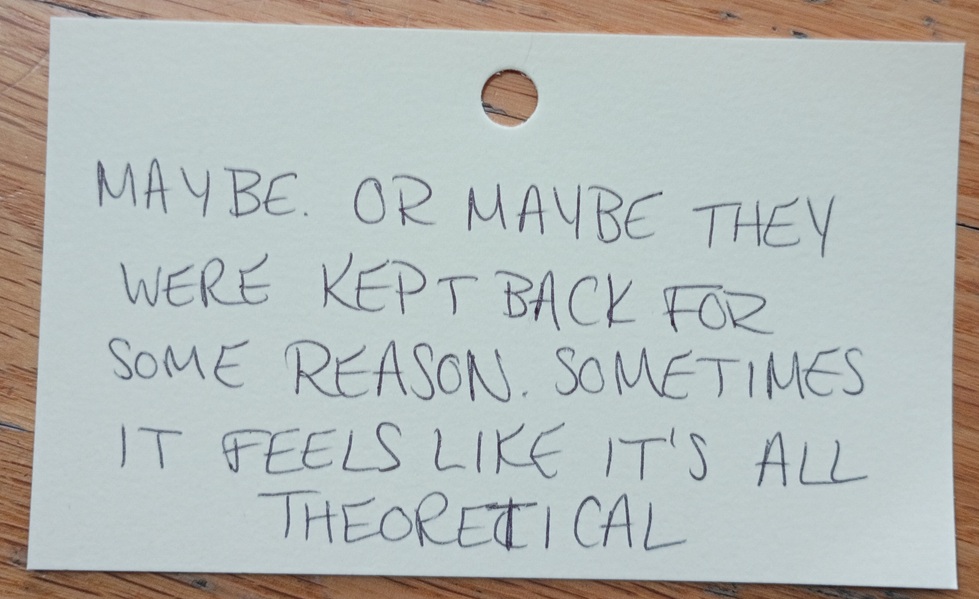 MAYBE. OR MAYBE THEY
WERE KEPT BACK FOR
SOME REASON. SOMETIMES
IT FEELS LIKE IT'S ALL
THEORETICAL